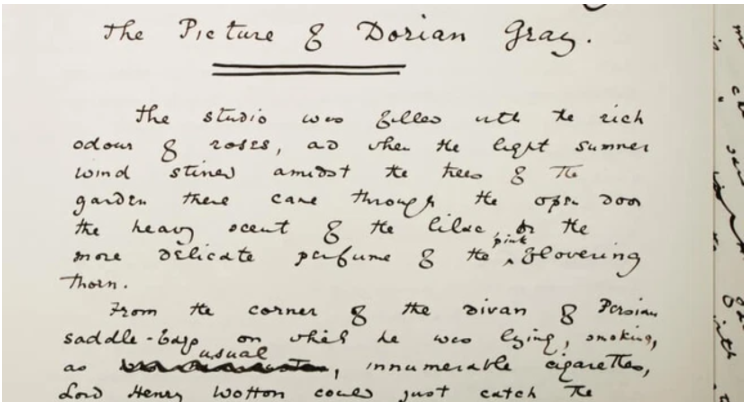 The Picture of Dorian Gray.
The studio was filled with the rich
odour of roses, and when the light summer
wind stirred amidst the trees of the
garden there came through the open door
the heavy scent of the lilac, or the
more delicate perfume of the pink flowering
thorn.
From the corner of the divan of Persian
saddle-bags on which he was lying, smoking,
as usual, innumerable cigarettes,
Lord Henry Wotton could just catch the